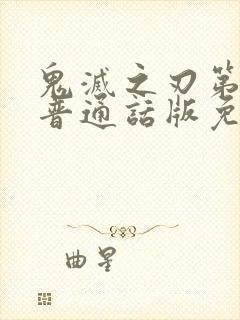 鬼滅之刃第
普通話版免
曲星